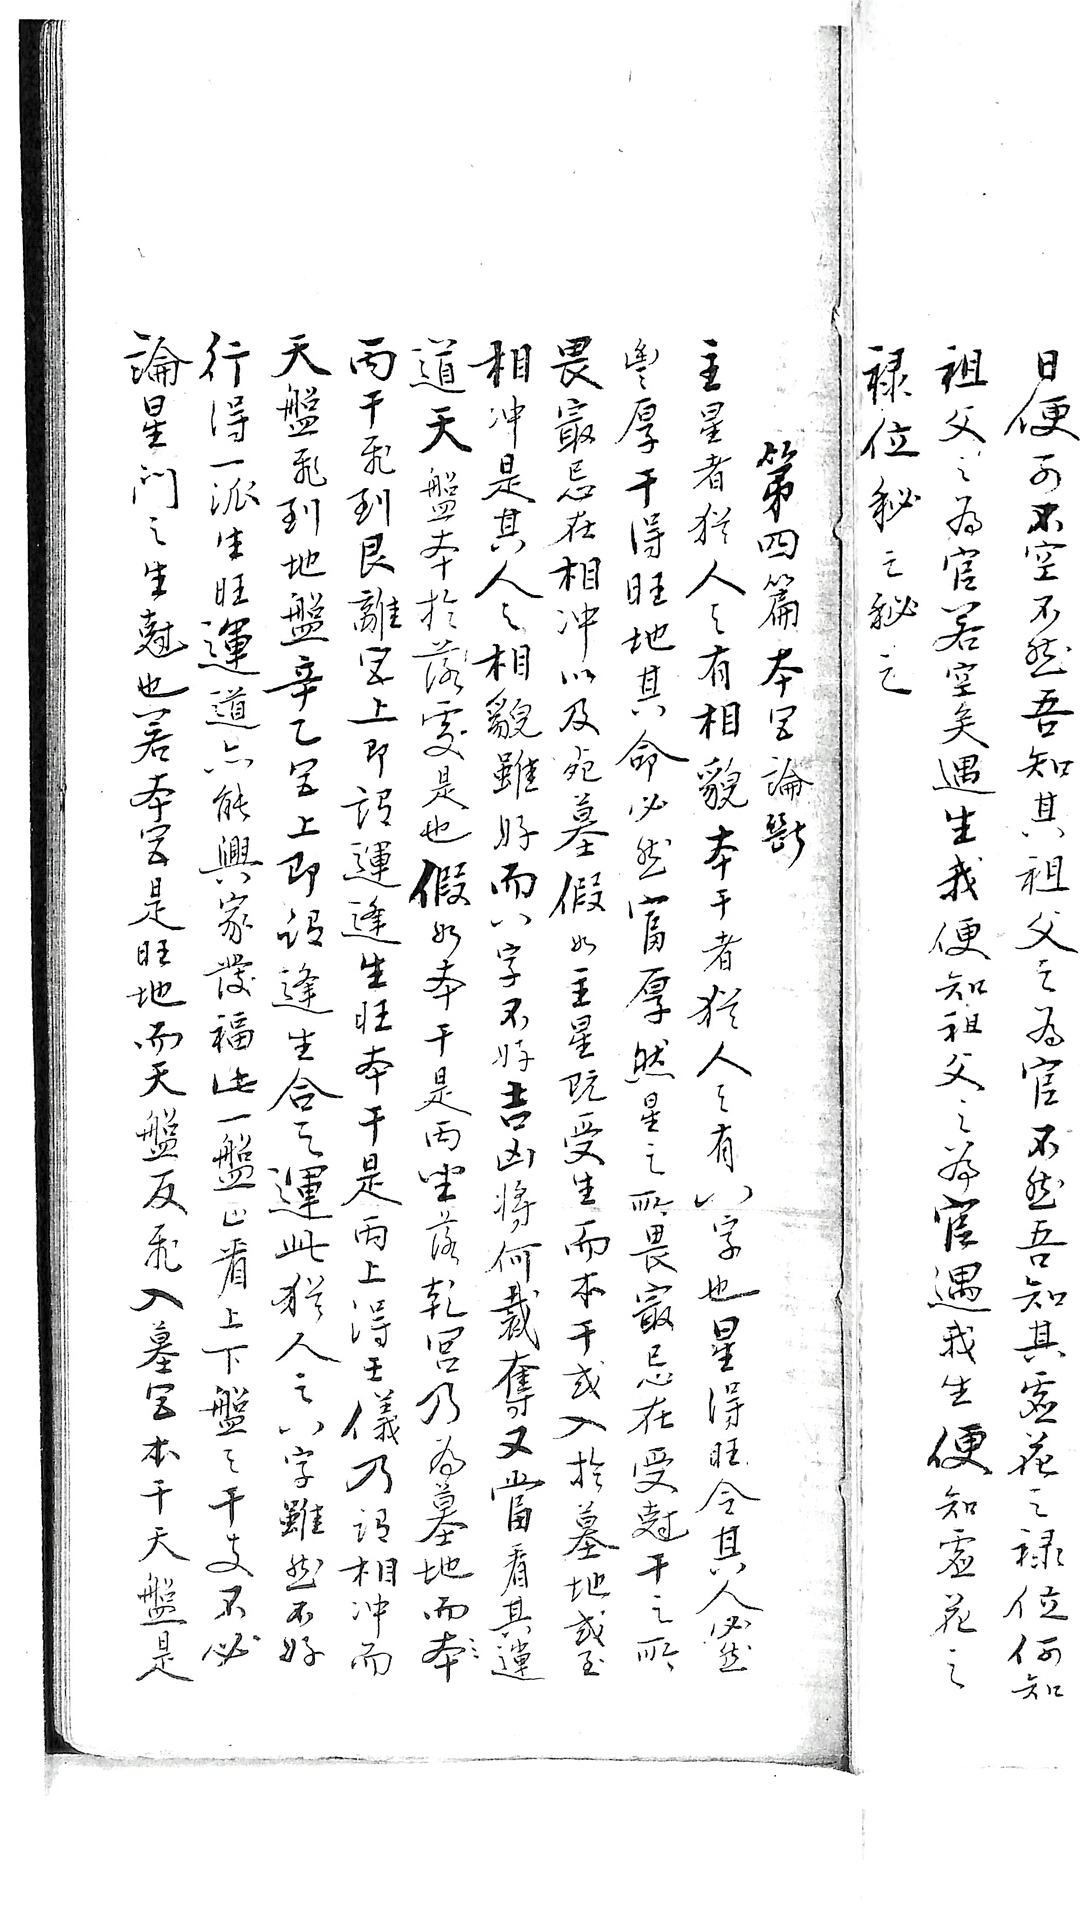 日便可不空不然吾知其祖父之為官不然吾知其虛花之祿位何知
祖父之為官若空矣遇生我便知祖父之為官遇我生便知虛花之
祿位秘之秘之
第四篇本宮論斷
主星者猶人之有相貌本干者猶人之有八字也星得旺令其人必然
豐厚干得旺地其命必然富厚然星之所畏最忌在受尅干之所
畏最忌在相冲以及宛墓假如主星既受生而本干或入於墓地或至
相冲是其人之相貌雖好而八字不好吉凶將何裁奪又當看其運
道天盤本於落處是也假如本干是丙坐落乾宮乃為墓地而本
丙干飛到艮離宮上即謂運逢生旺本干是丙上得壬儀乃謂相冲而
天盤飛到地盤辛乙宮上即謂逢生合之運此猶人之八字雖然不好
行得一派生旺運道亦能興家發福此一盤止看上下盤之干支不必
論星門之生尅也若本宮是旺地而天盤反飛入墓宮本干天盤是